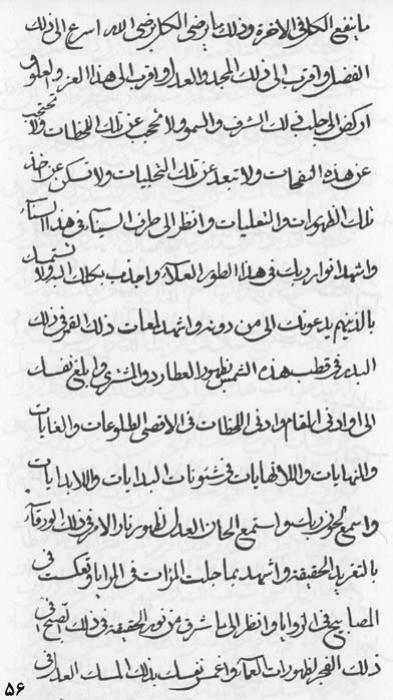 ما ينفع الكل في الاخرة وذلك ما يرضى الكل برضى الله اسرع الى ذلك
الفضل واقرب الى ذلك المجد والعدل واقرب الى هذا العز والعلو و
اركض الى جلب ذلك الشرف والسمو ولا تحجب عن تلك اللحظات ولا تحتجب
عن هذه النفحات ولا تبعد عن تلك التجليات ولا تسكن عن اخذ
تلك الظهورات والتغليات وانظر الى طرف السيناء في هذا السناء
واشهد انوار ربك في هذا الطور العلاء واجذب بكلك البر ولا تتمسك
بالذينهم يدعونك الى من دونه واشهد لمعات ذلك القمر في ذلك
البدر في قطب هذه الشمس بظهور العطارد والمشترى وابلغ نفسك
الى او ادنى المقام وادنى اللحظات في الاقصى الطلوعات والغايات
والنهايات واللانهايات في شئونات البدايات واللابدايات
واسمع لحون ربك واستمع الحان العدل لظهور نار الامر في ذلك الورقاء
بالتغريد الحقيقة واشهد بما جلت المرات في المرايا وتعكست في
المصابيح في الزوايا وانظر الى ما شرق من نور الحقيقة في ذلك الصبح في
ذلك الفجر لظهورات العماء واغمس نفسك بذلك المسك العدل في
۵۶